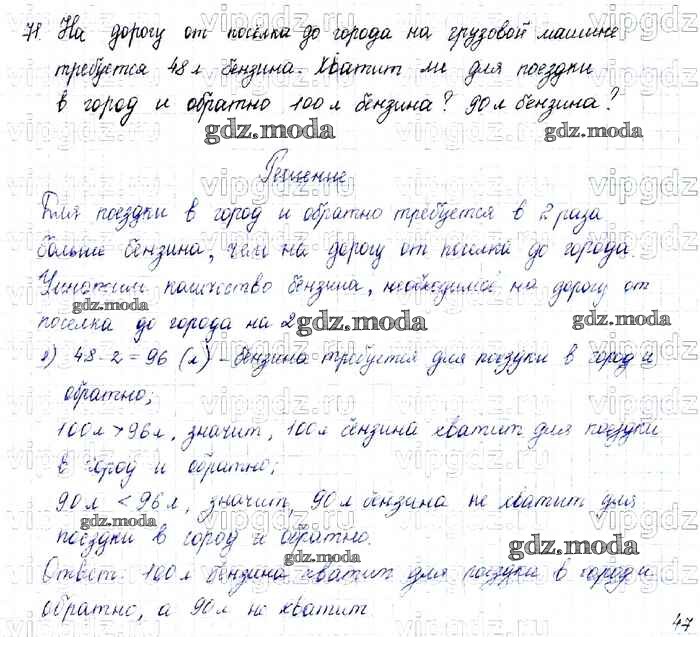 71. На дорогу от посёлка до города на грузовой машине
требуется 48 л бензина. Хватит ли для поездки
в город и обратно 100 л бензина? 90 л бензина?
gdz.moda gdz.moda
Решение
Для поездки в город и обратно требуется в 2 раза
больше бензина, чем на дорогу от посёлка до города.
Умножим количество бензина, необходимое на дорогу от
gdz.moda
посёлка до города на 2
gdz.moda gdz.moda
1) 48·2=96 (л) - бензина требуется для поездки в город и
обратно;
100л>96л, значит, 100л бензина хватит для поездки
в город и обратно;
90л<96л, значит, 90л бензина не хватит для
gdz.moda
поездки в город и обратно.
gdz.moda gdz.moda
Ответ: 100л бензина хватит для поездки в город и
обратно, а 90л не хватит.
47
vipgdz.ru